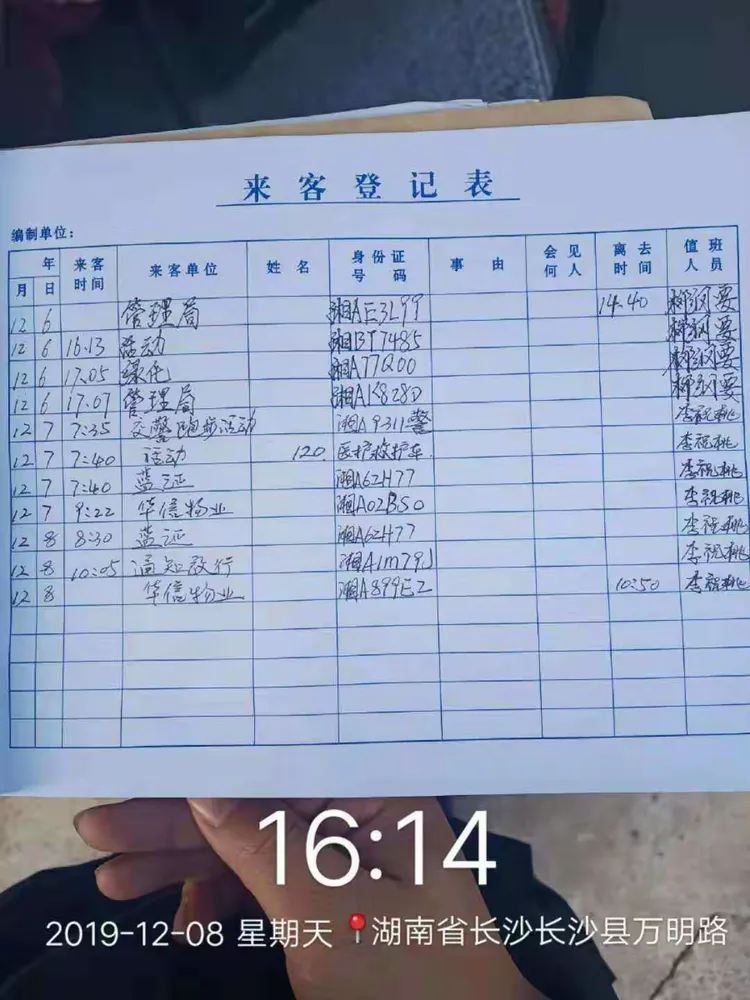 来客登记表
编制单位：
年 月 日 来客时间 来客单位 姓名 身份证号码 事由 会见何人 离去时间 值班人员
12 6 管理局 湘AE3L99 14:40
12 6 16:13 活动 湘BT7485
12 6 17:05 绿化 湘A77Q00
12 6 17:07 管理局 湘AK828D
12 7 7:35 交警跑步活动 湘A9311警 李祝桃
12 7 7:40 活动 120 医护救护车 李祝桃
12 7 7:40 蓝证 湘A62H77 李祝桃
12 7 9:22 华信物业 湘A02B50 李祝桃
12 8 8:30 蓝证 湘A62H77 李祝桃
12 8 10:05 通知放行 湘A1m79J 李祝桃
12 8 华信物业 湘A899E2 10:50 李祝桃
16:14
2019-12-08 星期天 湖南省长沙长沙县万明路